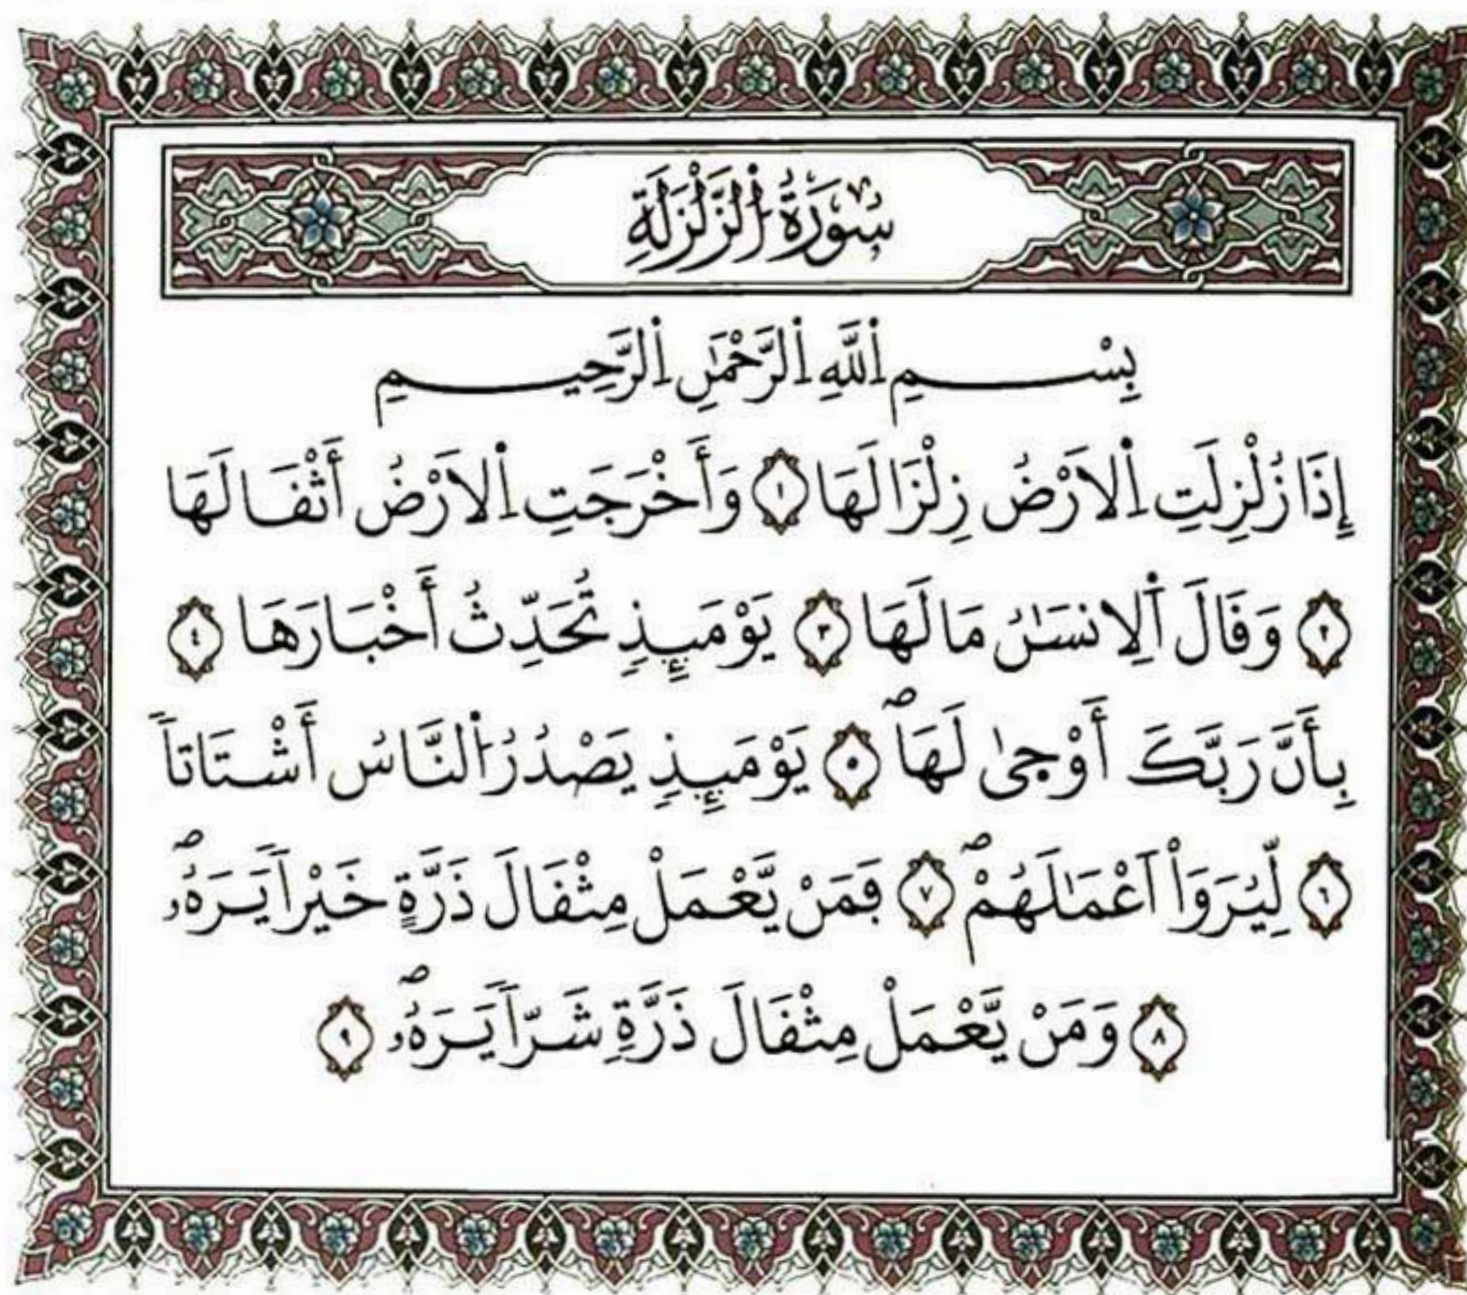 سُورَةُ الزَّلْزَلَةِ
بِسْمِ اِ۬للَّهِ اِ۬لرَّحْمَٰنِ اِ۬لرَّحِيمِ
إِذَا زُلْزِلَتِ اِ۬لَارْضُ زِلْزَالَهَا ١ وَأَخْرَجَتِ اِ۬لَارْضُ أَثْفَالَهَا
٢ وَفَالَ اَ۬لِانسَٰنُ مَا لَهَا ٣ يَوْمَئِذٍ تُحَدِّثُ أَخْبَارَهَا ٤
بِأَنَّ رَبَّكَ أَوْحىٰ لَهَاۖ ٥ يَوْمَئِذٍ يَصْدُرُ اُ۬لنَّاسُ أَشْتَاتاٗ
٦ لِّيُرَوَاْ اَعْمَٰلَهُمْۖ ٧ ڢَمَنْ يَّعْمَلْ مِثْفَالَ ذَرَّةٍ خَيْراٗ يَرَهُۥۖ
٨ وَمَنْ يَّعْمَلْ مِثْفَالَ ذَرَّةٖ شَرّاٗ يَرَهُۥۖ ٩